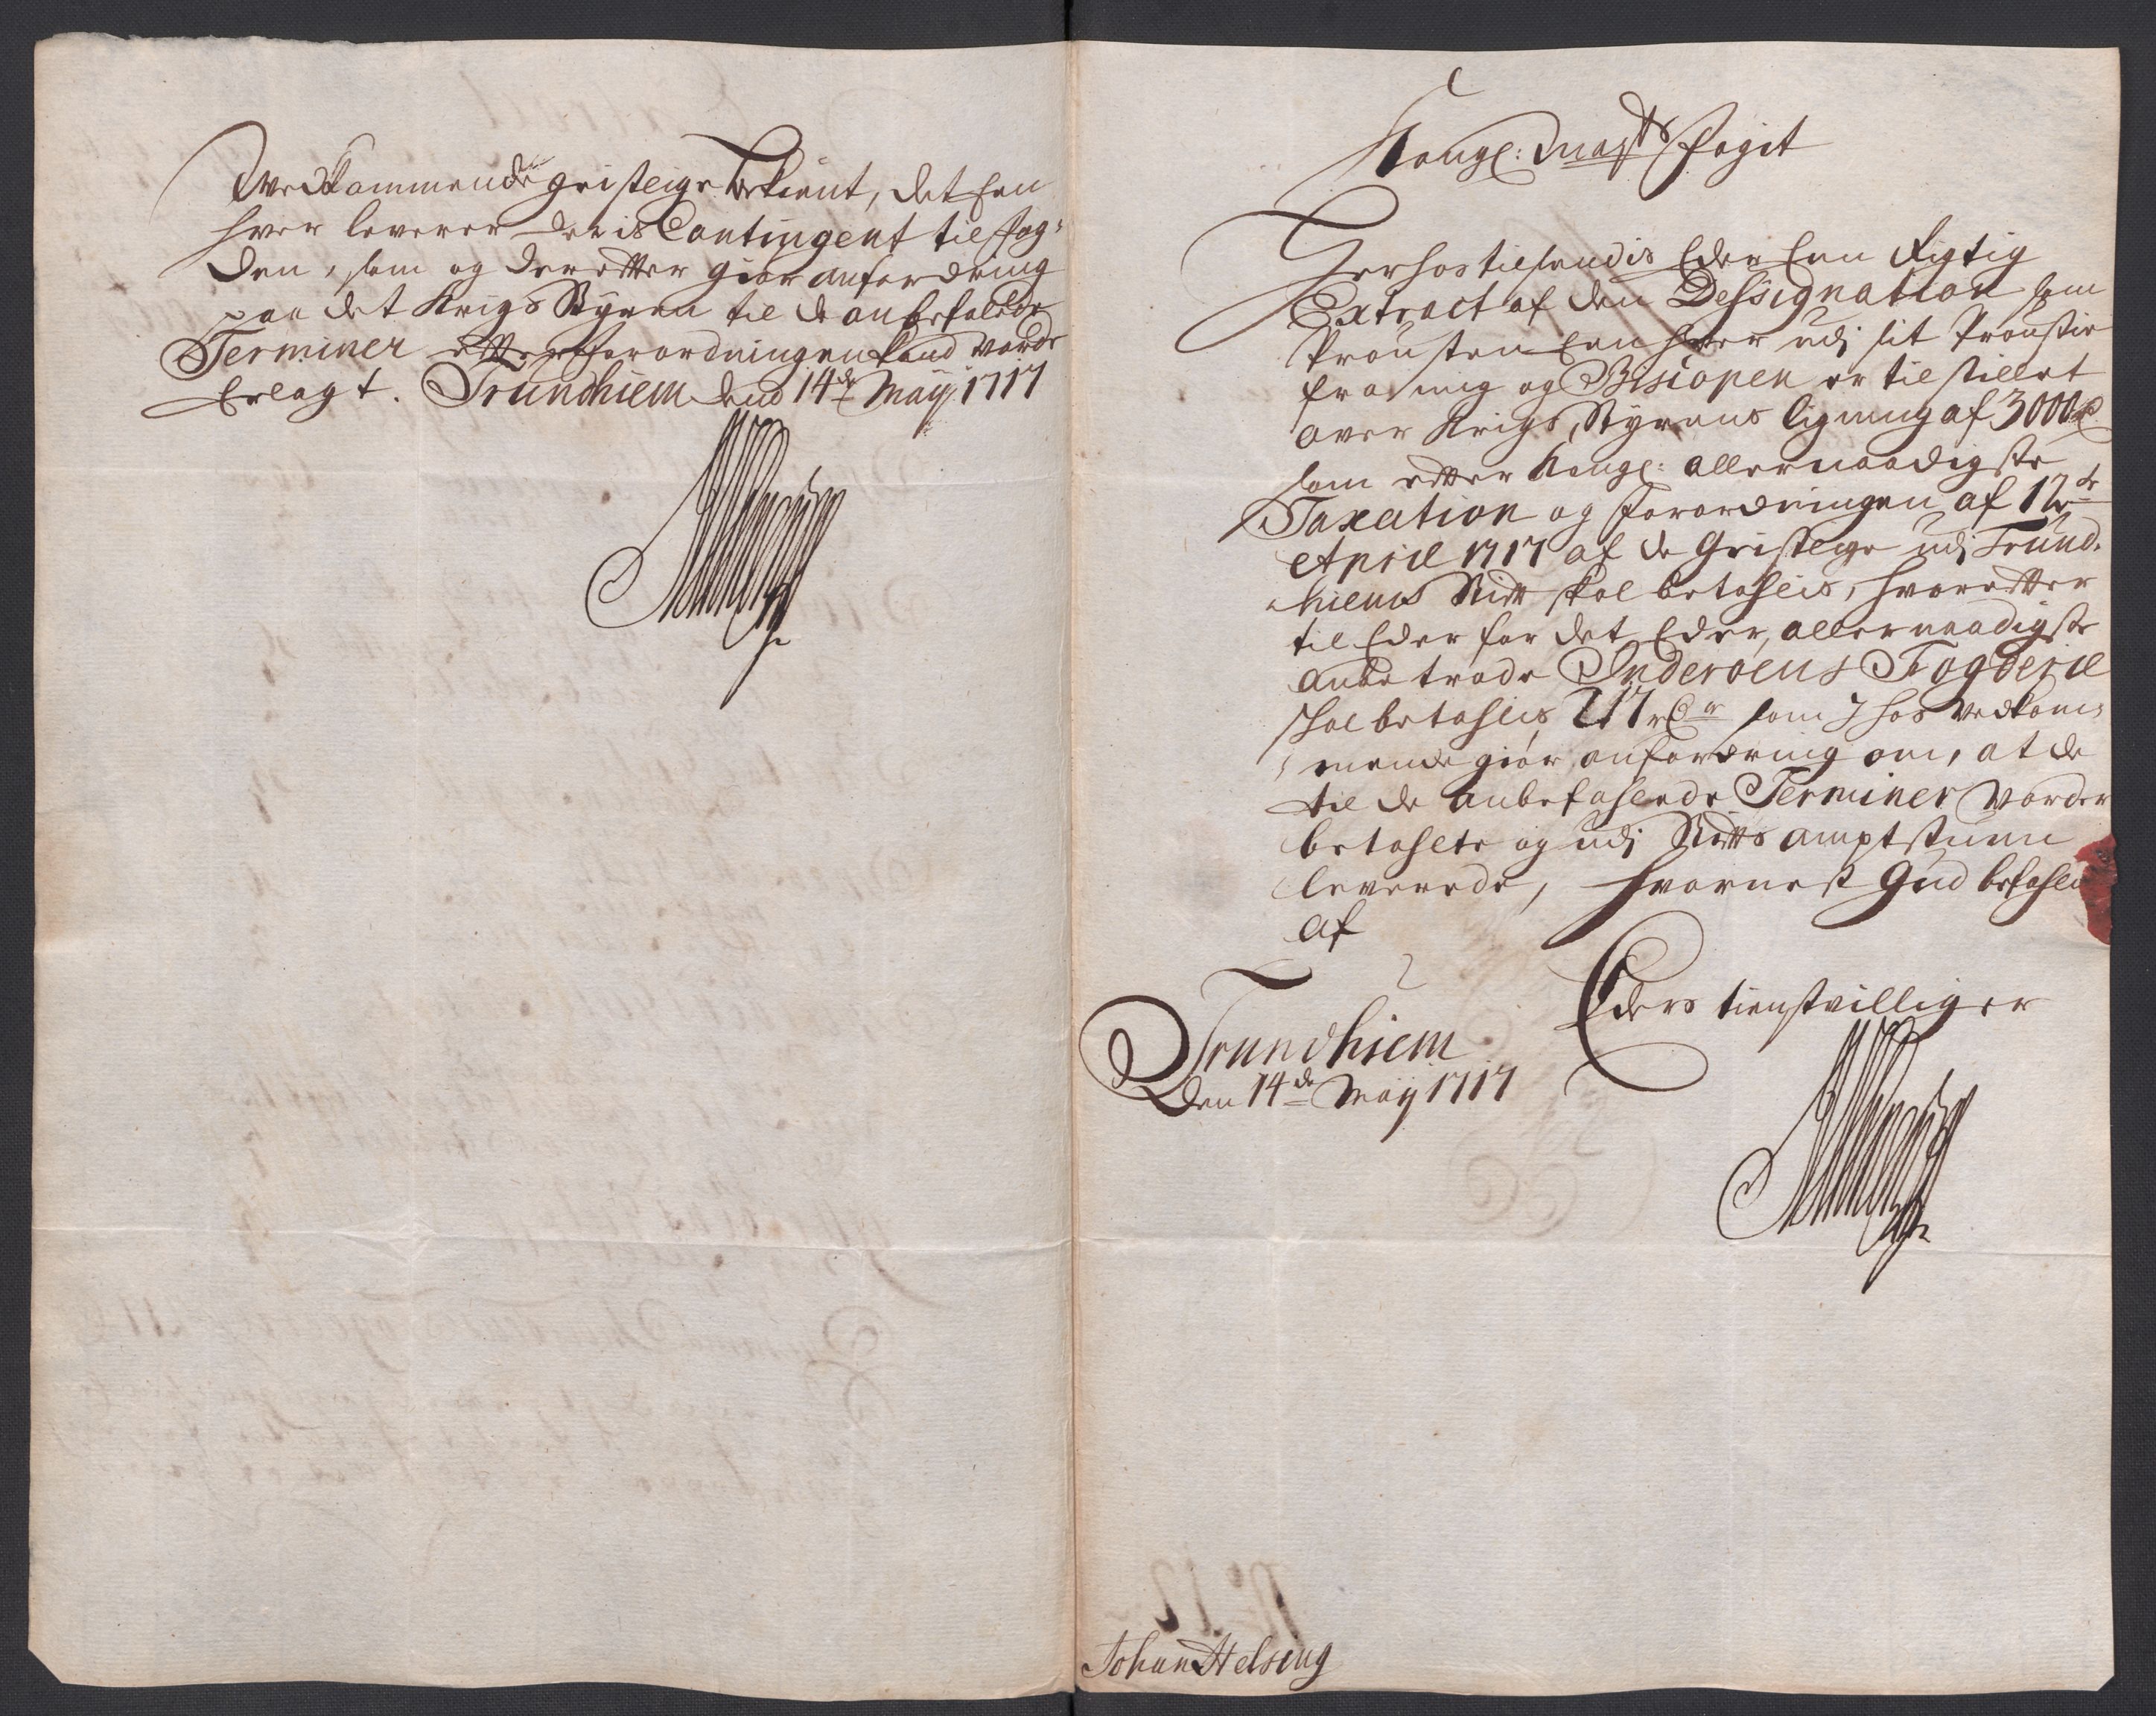 Wedkommende geistlige bekient, det Een
hver leverer deris Contingent til fog¬
den, som og derefter giør anfordring
paa det Krigs Styren til de anbefalede
Terminer efter forordningen kand vorde
Erlagt. Trundhiem dend 14de Maÿ 1717
Kongl: Mayts fogit
Herhos tilsendis Eder Een Rigtig
Extract af den Dessignation som
Prousten Een hver udj sit Proustie
fra mig og Biscopen er tilstillet
over Krigs Styrens ligning af 3000 rd
som efter Kongl: allernaadigste
Taxation og forordningen af 12te
April 1717 af de Geistlige udj Trund¬
hiems Stift skal betahles, hvorefter
til Eder for det Eder, allernaadigst
anbetrode Inderøens Fogderie
skal betahles 217 rdr som I hos Vedkom¬
mende giør anfordring om, at de
til de anbefahlede Terminer vorder
betahlte og udj Stiftsamptstuen
leverede, hvornest Gud befahlet
af
Eders tienstvilliger
Trundhiem
den 14de Maÿ 1717
No 12
Johan Helsing